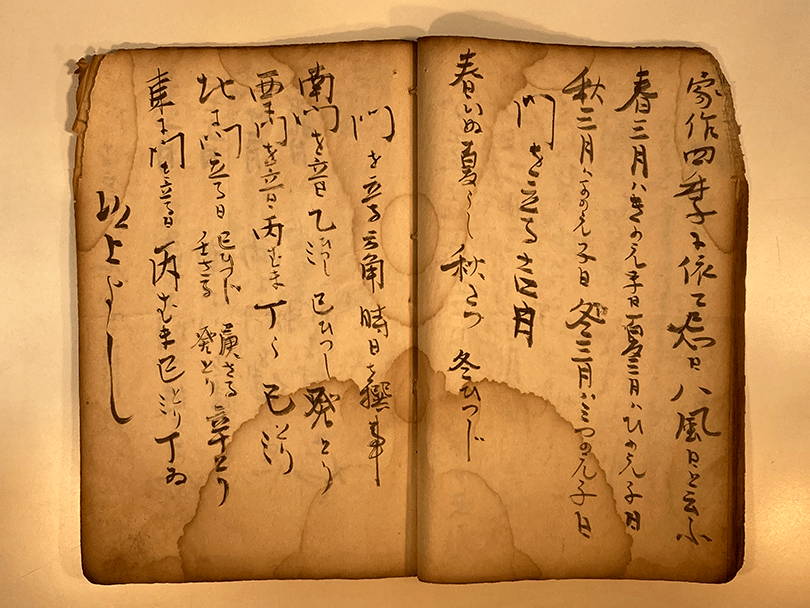 家作四季ニ依て忌日八風日と云ふ
春三月ハきのえ子日夏三月ハひのえ子日
秋三月ハかのえ子日冬三月ハみつのえ子日
門を立る吉月
春いぬ夏うし秋たつ冬ひつじ
門を立る方角時日を撰事
南門を立る日乙ひつし己ひつし癸とり
西門を立る日丙むま丁己とり
北に門立る日己ひつじ壬さる癸とり庚さる辛とり
東に門を立る日丙むま己とり丁ゐ
以上よし